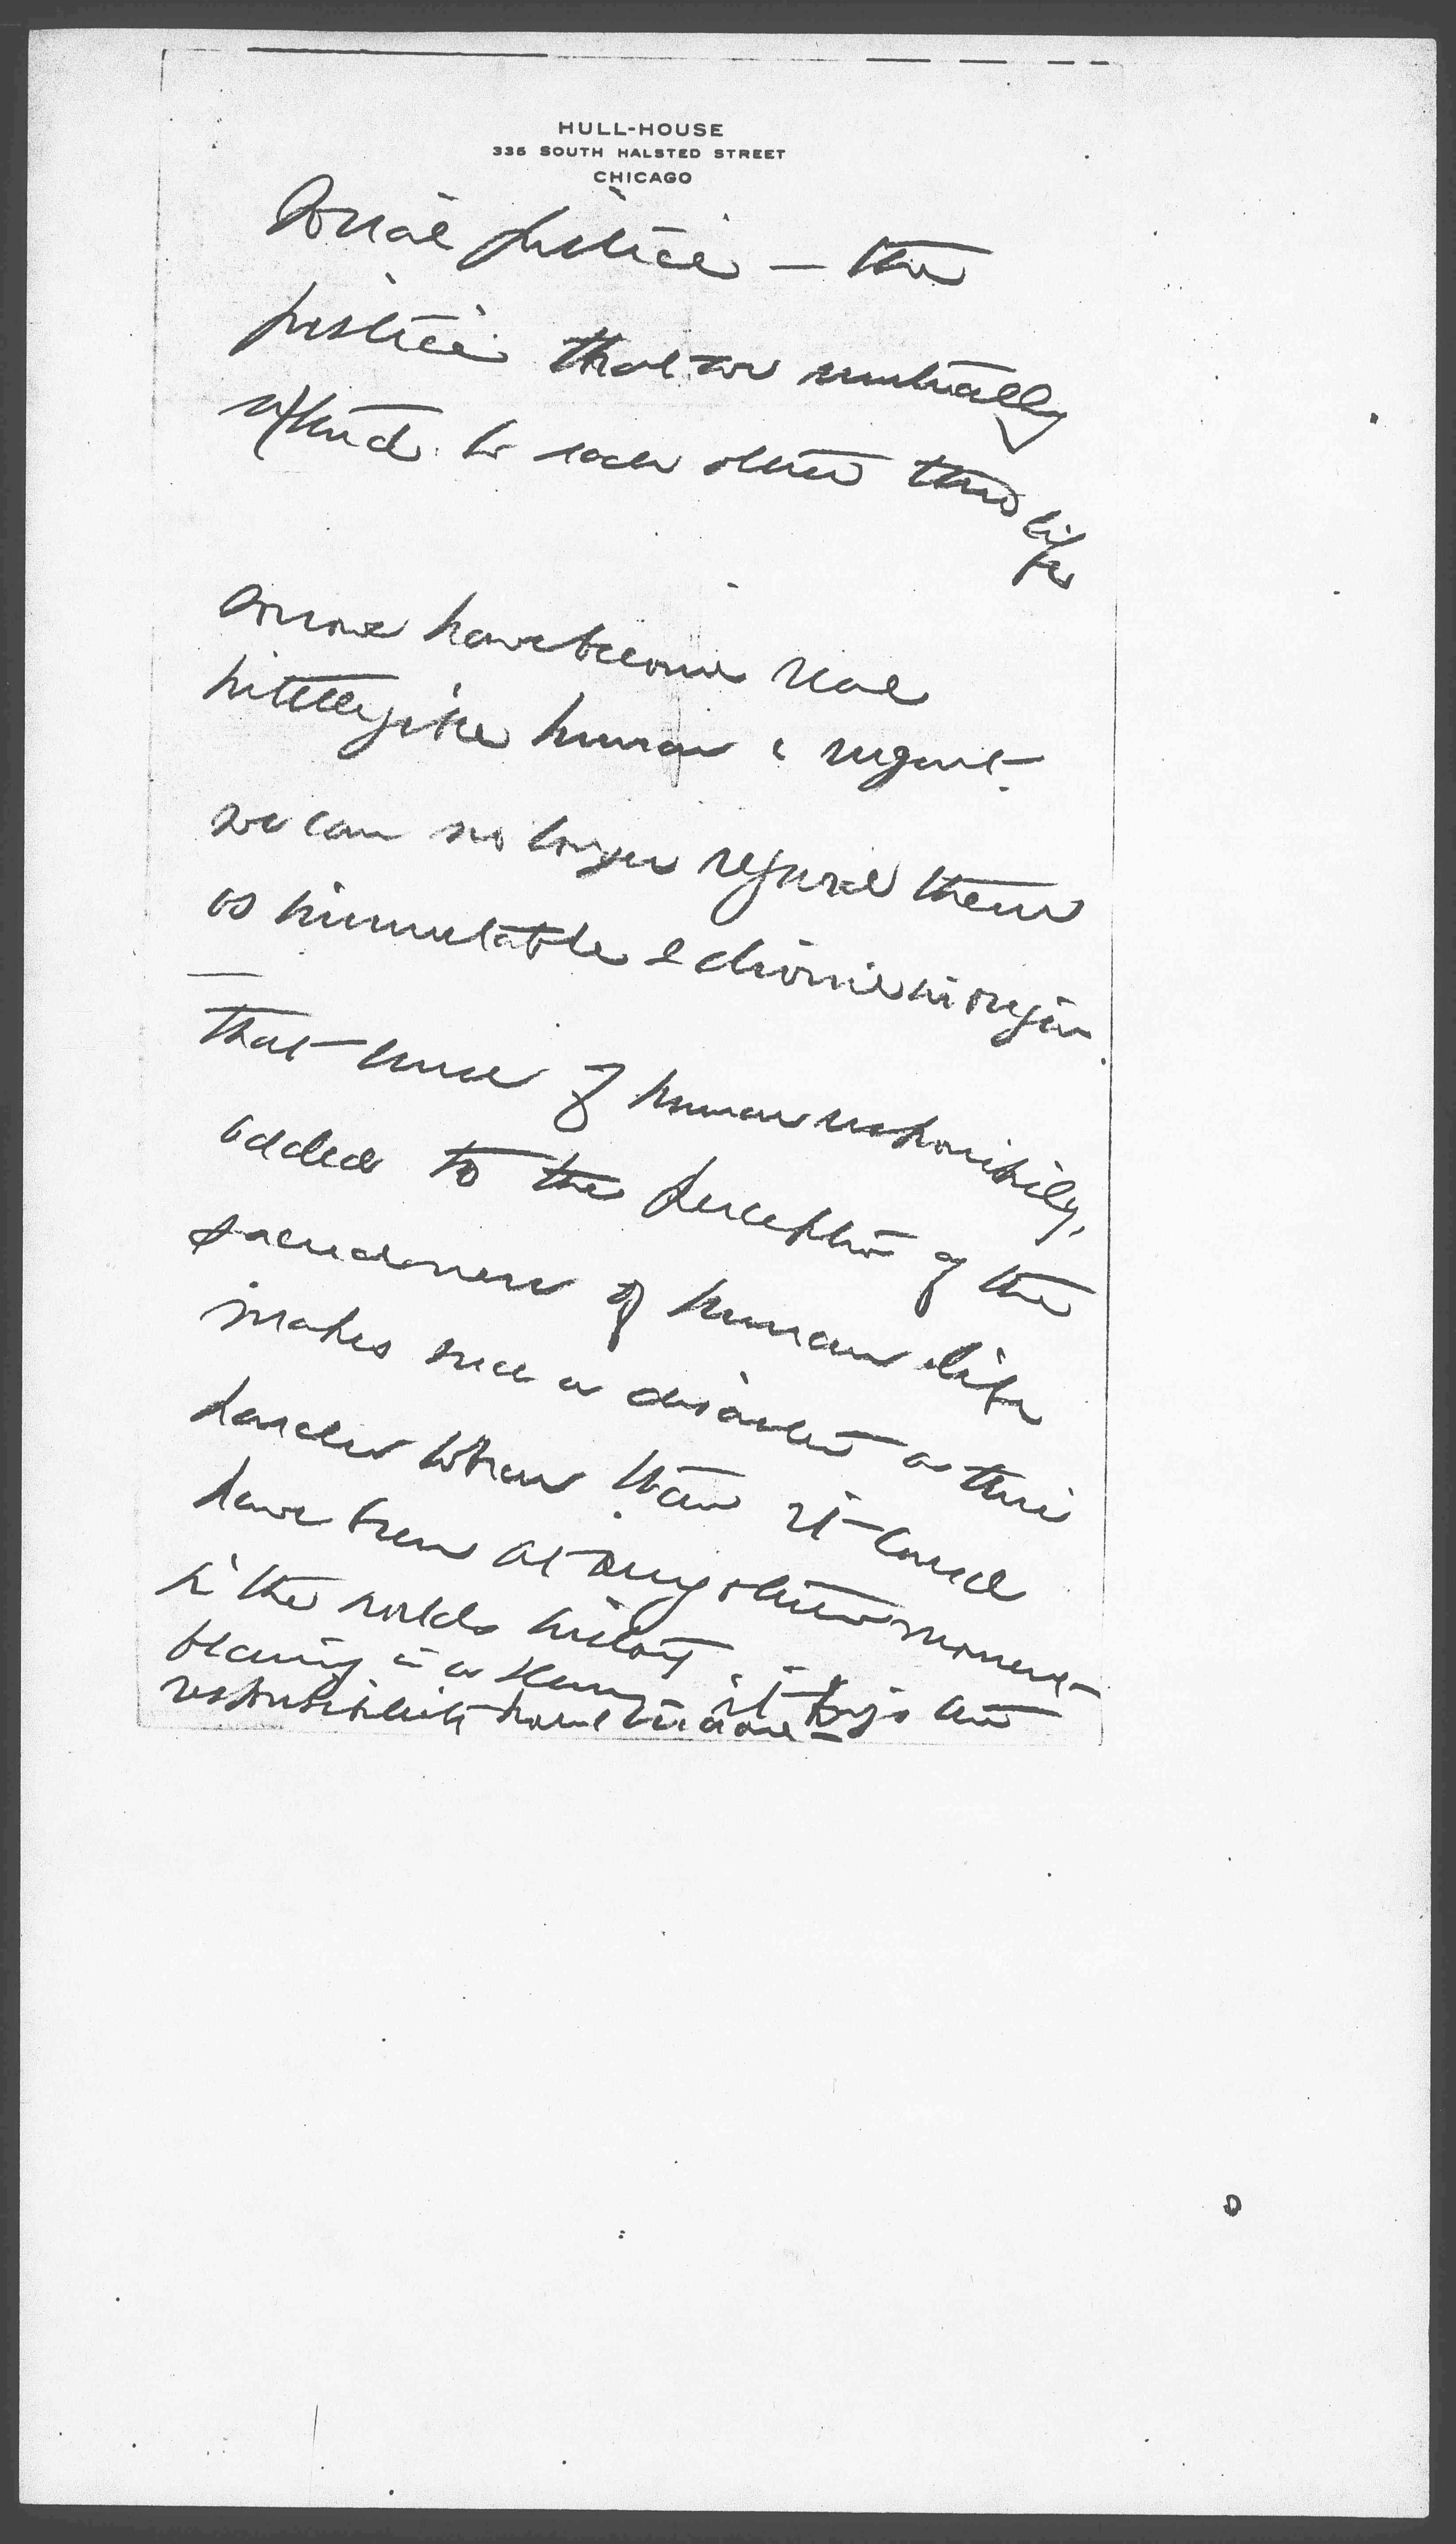 HULL-HOUSE
335 SOUTH HALSTED STREET
CHICAGO
Social justice — the
justice that we mutually
afford to each other thro life
have become real
human & urgent.
we can no longer regard them
as immutable & divine in origin.
That sense of human responsibility,
added to the perception of the
sacredness of human life
makes such a disaster as this
harder to bear than it could
have been at any other moment
in the worlds history, it
bearing it
responsibility